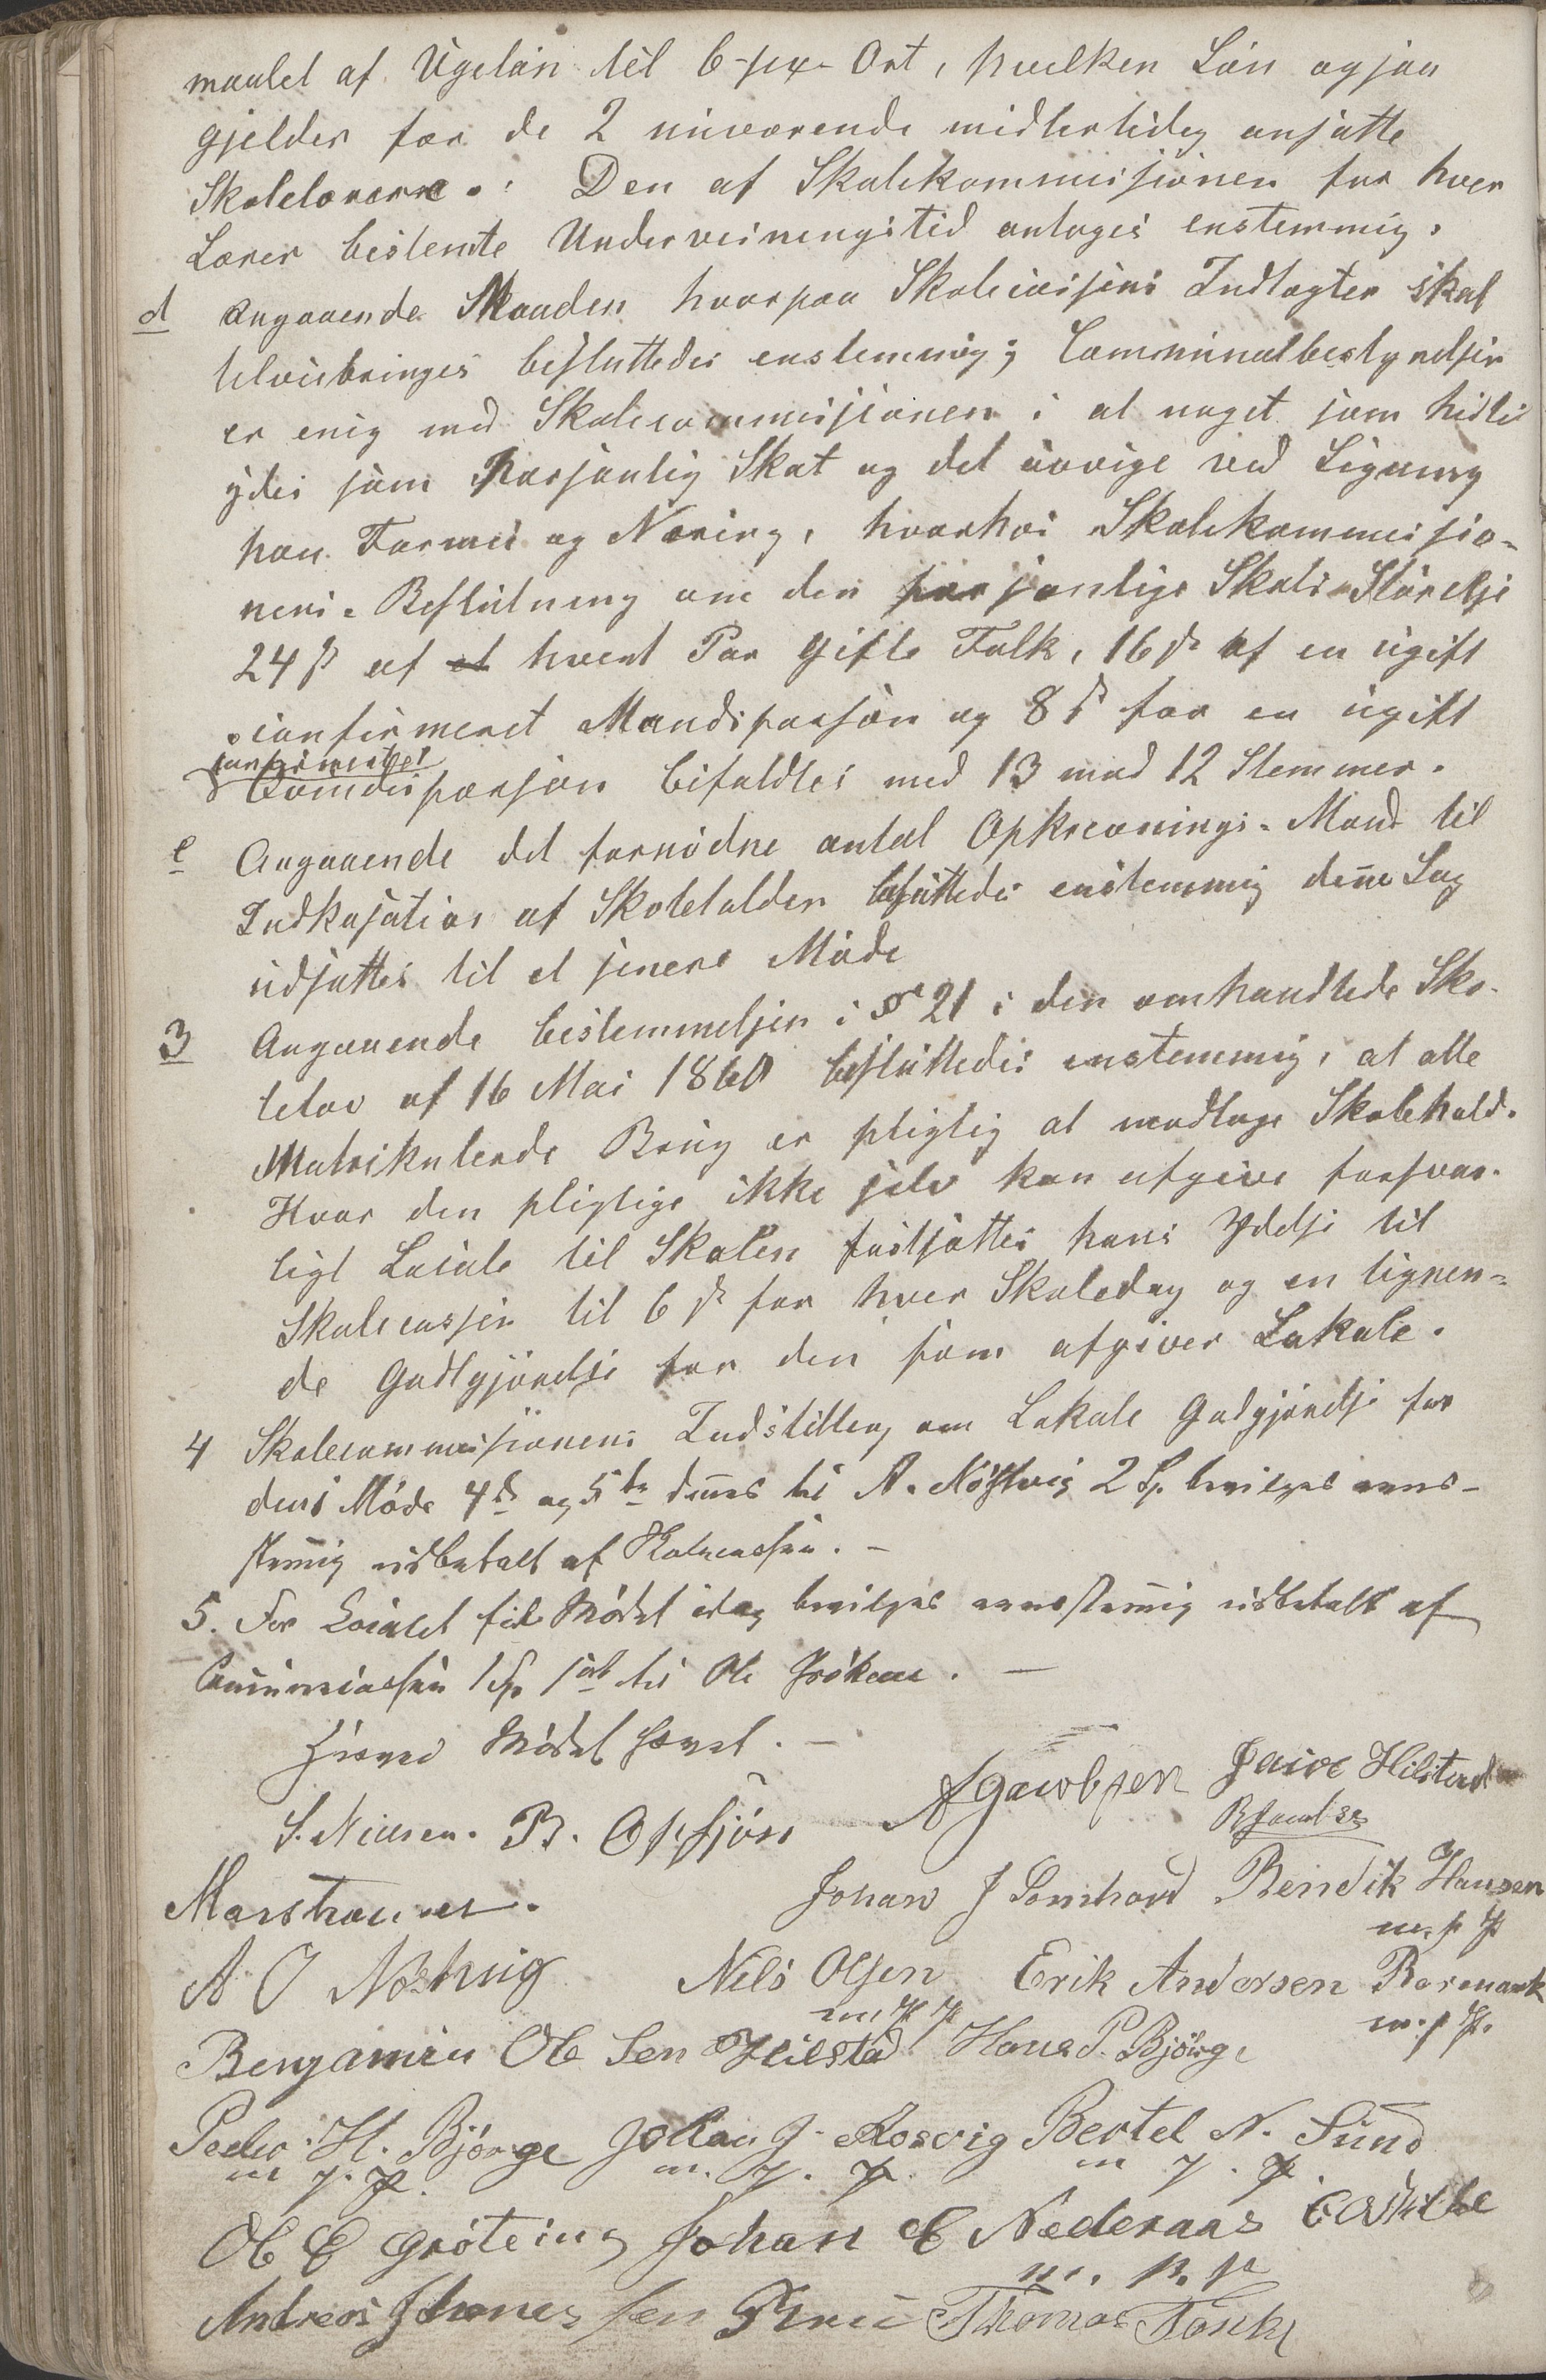 maalet af Ugeløn til 6-sex- Ort, hvilken Løn ogsaa
gjelder for de 2 nuværende midlertidig ansatte
Skolelærere. Den af Skolekommissionen for hver
Lærer bestemte Underviisningstid antoges enstemmig.
d Angaaende Maaden hvorpaa Skolecassens Indtægter skal
tilveiebringes besluttedes enstemmig; Communalbestyrelsen
er enig med Skolecommissionen i at noget som hidtil
ydes som Personlig Skat og det øvrige ved Ligning
paa Formue og Næring, hvorhos Skolekommissio-
nens Beslutning om den personlige Skats Størelse
24 ß af hvert Par Gifte Folk, 16 ß af en ugift
confirmeret Mandsperson og 8 ß for en ugift
confirmeret
Qvindesperson bifaldtes med 13 mod 12 Stemmer.
e Angaaende det fornødne antal Opkrævnings-Mænd til
Indkasation af Skoletolden besluttedes enstemmig denne Sag
udsattes til et senere Møde
3 Angaaende bestemmelsen i § 21 i den omhandlede Sko-
lelov af 16 Mai 1860 besluttedes enstemmig, at alle
Matrikulerede Brug er pligtig at modtage Skolehold.
Hvor den pligtige ikke selv kan afgive forsvar-
ligt Locale til Skolen fastsættes hans Ydelse til
Skolecassen til 6 ß for hver Skoledag og en lignen-
de Godtgjørelse for den som afgiver Lokale.
4 Skolecommissionens Indstilling om Lokale Godgjørelse for
dens Møde 4de og 5te dennes til A. Nøstvig 2 Sp. bevilges eens-
stemmig udbetalt af Skolecassen. -
5. For Localet til Mødet idag bevilges eensstemmig udbetalt af
Communecassen 1 Sp. 1 ort til Ole
Hermed Mødet hævet. -
A Jacobsen
S. Nielsen. B. Opsjøn
R Jacobsen
Johan J Bendik Hansen
m. p P
A O Nøstvig Nils Olsen Erik Andersen Boremark
m P P m. p P.
Benjamin Ole Sen Hilstad Hans P. Bjørge
Peder H. Bjørge Johan J. Rosvig Bertel N. Sund
m p. P. m. p. p. m p. p.
Ole E Grøteing Johan E Nederaas
m. p. p
Andreas Johannes sen Thomas